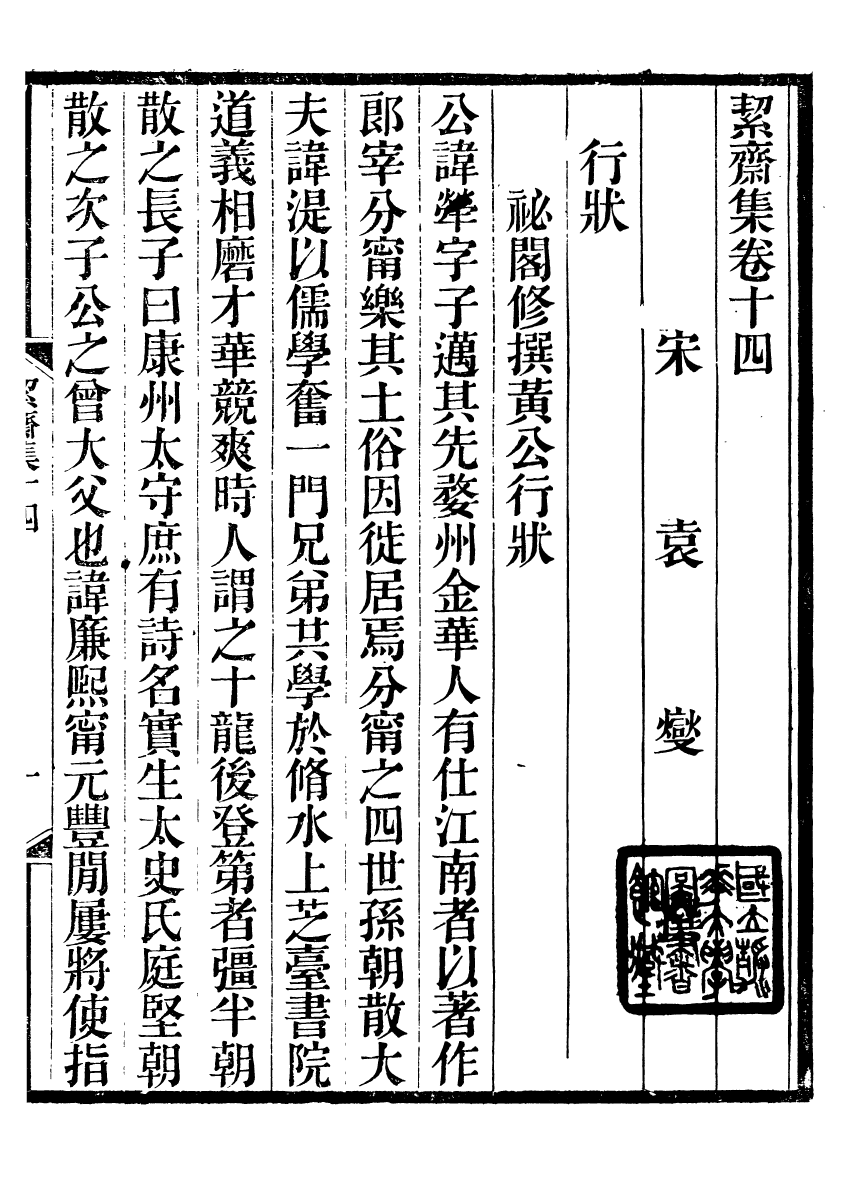 絜齋集卷十四
宋　袁　燮
行狀
祕閣修撰黃公行狀
公諱犖字子邁其先婺州金華人有仕江南者以著作
郎宰分甯樂其土俗因徙居焉分甯之四世孫朝散大
夫諱湜以儒學奮一門兄弟共學於脩水上芝臺書院
道義相磨才華競爽時人謂之十龍後登第者彊半朝
散之長子曰康州太守庶有詩名實生太史氏庭堅朝
散之次子公之曾大父也諱廉熙甯元豐閒屢將使指
絜齋集十四
一